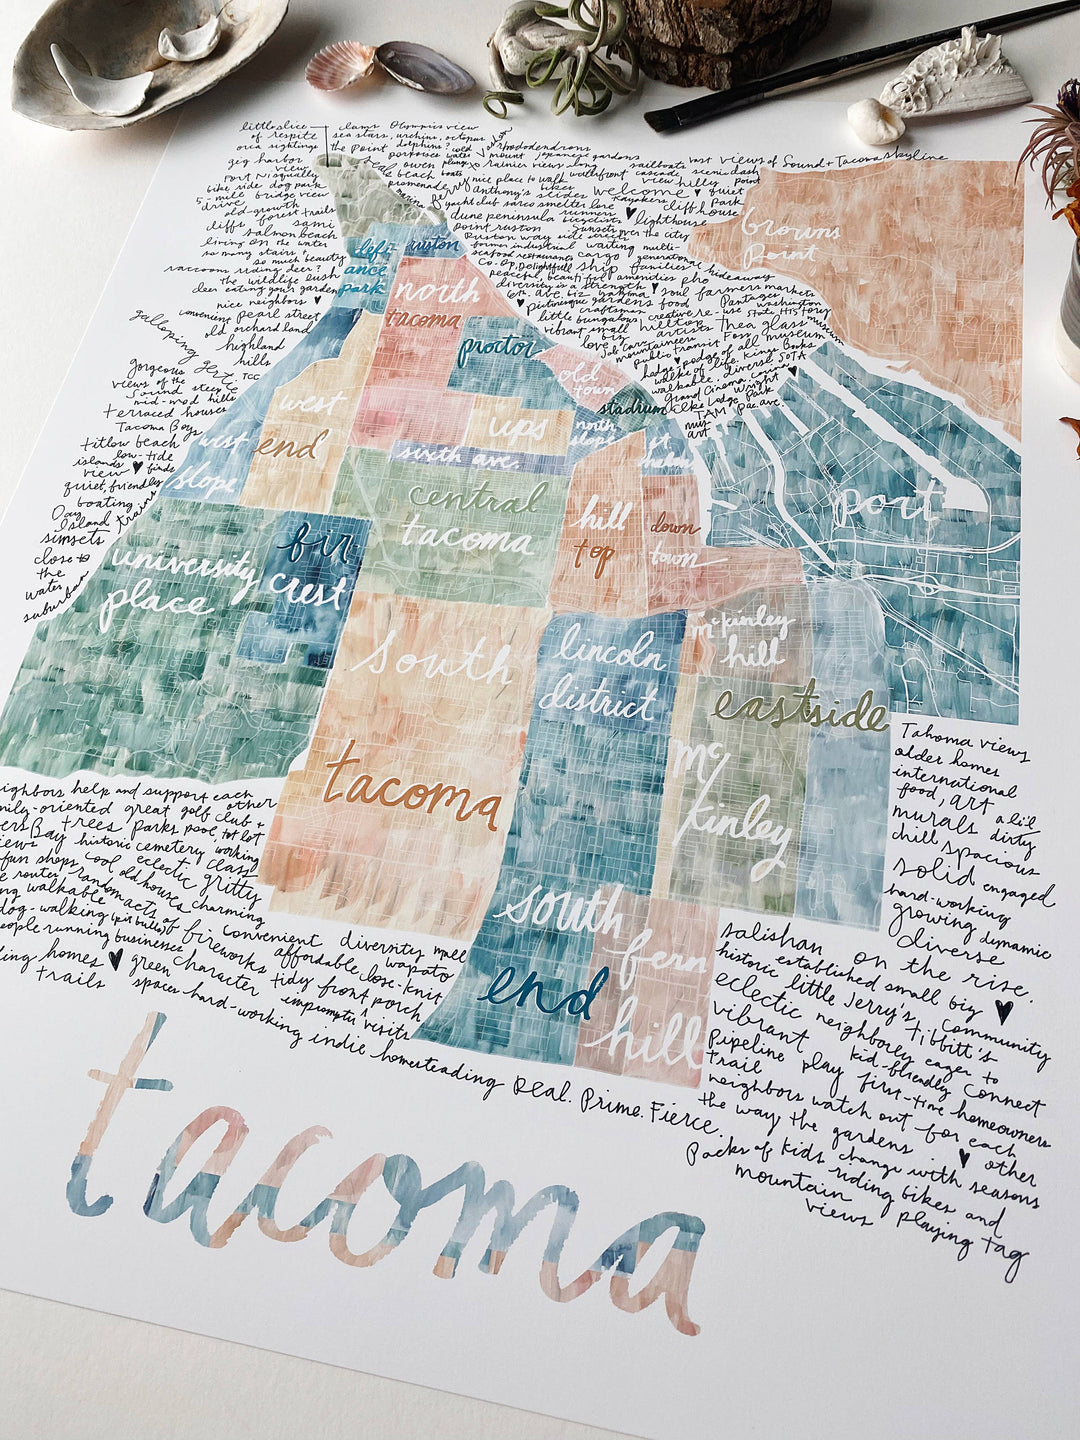 little slice
of respite
orca sightings
gig harbor
view
Point Nisqually
bike ride dog park
5-mile bridge view
drive
old-growth
forest trails
cliffs sami
salmon beach
living on the water
so many stairs!
so much beauty
raccoons riding deer?
the wildlife lush
deer eating your garden
nice neighbors ♥
convenient pearl street
old orchard land
galloping
highland
hills
gorgeous
TCC
views of the steep
Sound
mid-mod hills
terraced houses
Tacoma Boys
titlow beach
low-tide
islands ♥ birds
view
quiet, friendly
boating
Day
Island trains
sunsets
close to
the
water
suburban
clams Olympics view
sea stars, urchins, octopus
the Point dolphins?
rhododendrons
Japanese gardens
mount
rainier views long
sailboats vast views of Sound + Tacoma skyline
owen beach
promenade
nice place to walk waterfront cascade, scenic dash
anthony's bikes
welcome ♥ quiet
view hilly point
yacht club sarco smelter lore
kayakers cliff house
Park
dune peninsula runners
bicyclists ♥ lighthouse
point ruston
sunsets over the city
Ruston way
former industrial waiting multi-
seafood restaurants cargo generational
co-op, delightful ship families hideaway
peaceful, beautiful amenities pho
diversity is a strength ♥ soul farmers markets
6th ave. biz
♥ picturesque gardens food Pantages
craftsman creative re-use Washington
State History
little bungalows hilltop
artists Thea Foss glass museum
vibrant small
biz
public transit
love Job Carr
mountaineers
hodge podge of all museum
walks of life. King's Books
walkable, diverse SOTA
Grand Cinema
Wright
Elks Lodge Park
TAM pac. ave.
music
art
browns
point
defi-
ance
park
ruston
north
tacoma
proctor
old
town
stadium
west
end
west
slope
ups
north
slope
sixth ave.
st.
central
tacoma
hill
top
down
town
port
university
place
fir
crest
south
tacoma
lincoln
district
mckinley
hill
eastside
mc
kinley
south
end
fern
hill
Tahoma views
older homes
international
food, art a lil
murals dirty
chill spacious
solid engaged
hard-working
growing dynamic
diverse
salishan on the rise.
established small biz ♥
historic little Jerry's, community
eclectic neighborly Tibbitt's
vibrant kid-friendly eager to
Pipeline play first-time connect
trail homeowners
neighbors watch out for each
the way the gardens ♥ other
Packs of kids change with seasons
mountain riding bikes and
views playing tag
neighbors help and support each
family-oriented great golf club + other
Bay trees parks pool tot lot
views historic cemetery working
fun shops cool eclectic class
old houses gritty
random acts charming
walkable of fireworks
dog-walking (pit bulls)
people running businesses
homes ♥ green character
trails spaces hard-working
convenient diversity mall
affordable, close-knit wapato
tidy front porch
impromptu visits
indie homesteading Real. Prime. Fierce.
tacoma